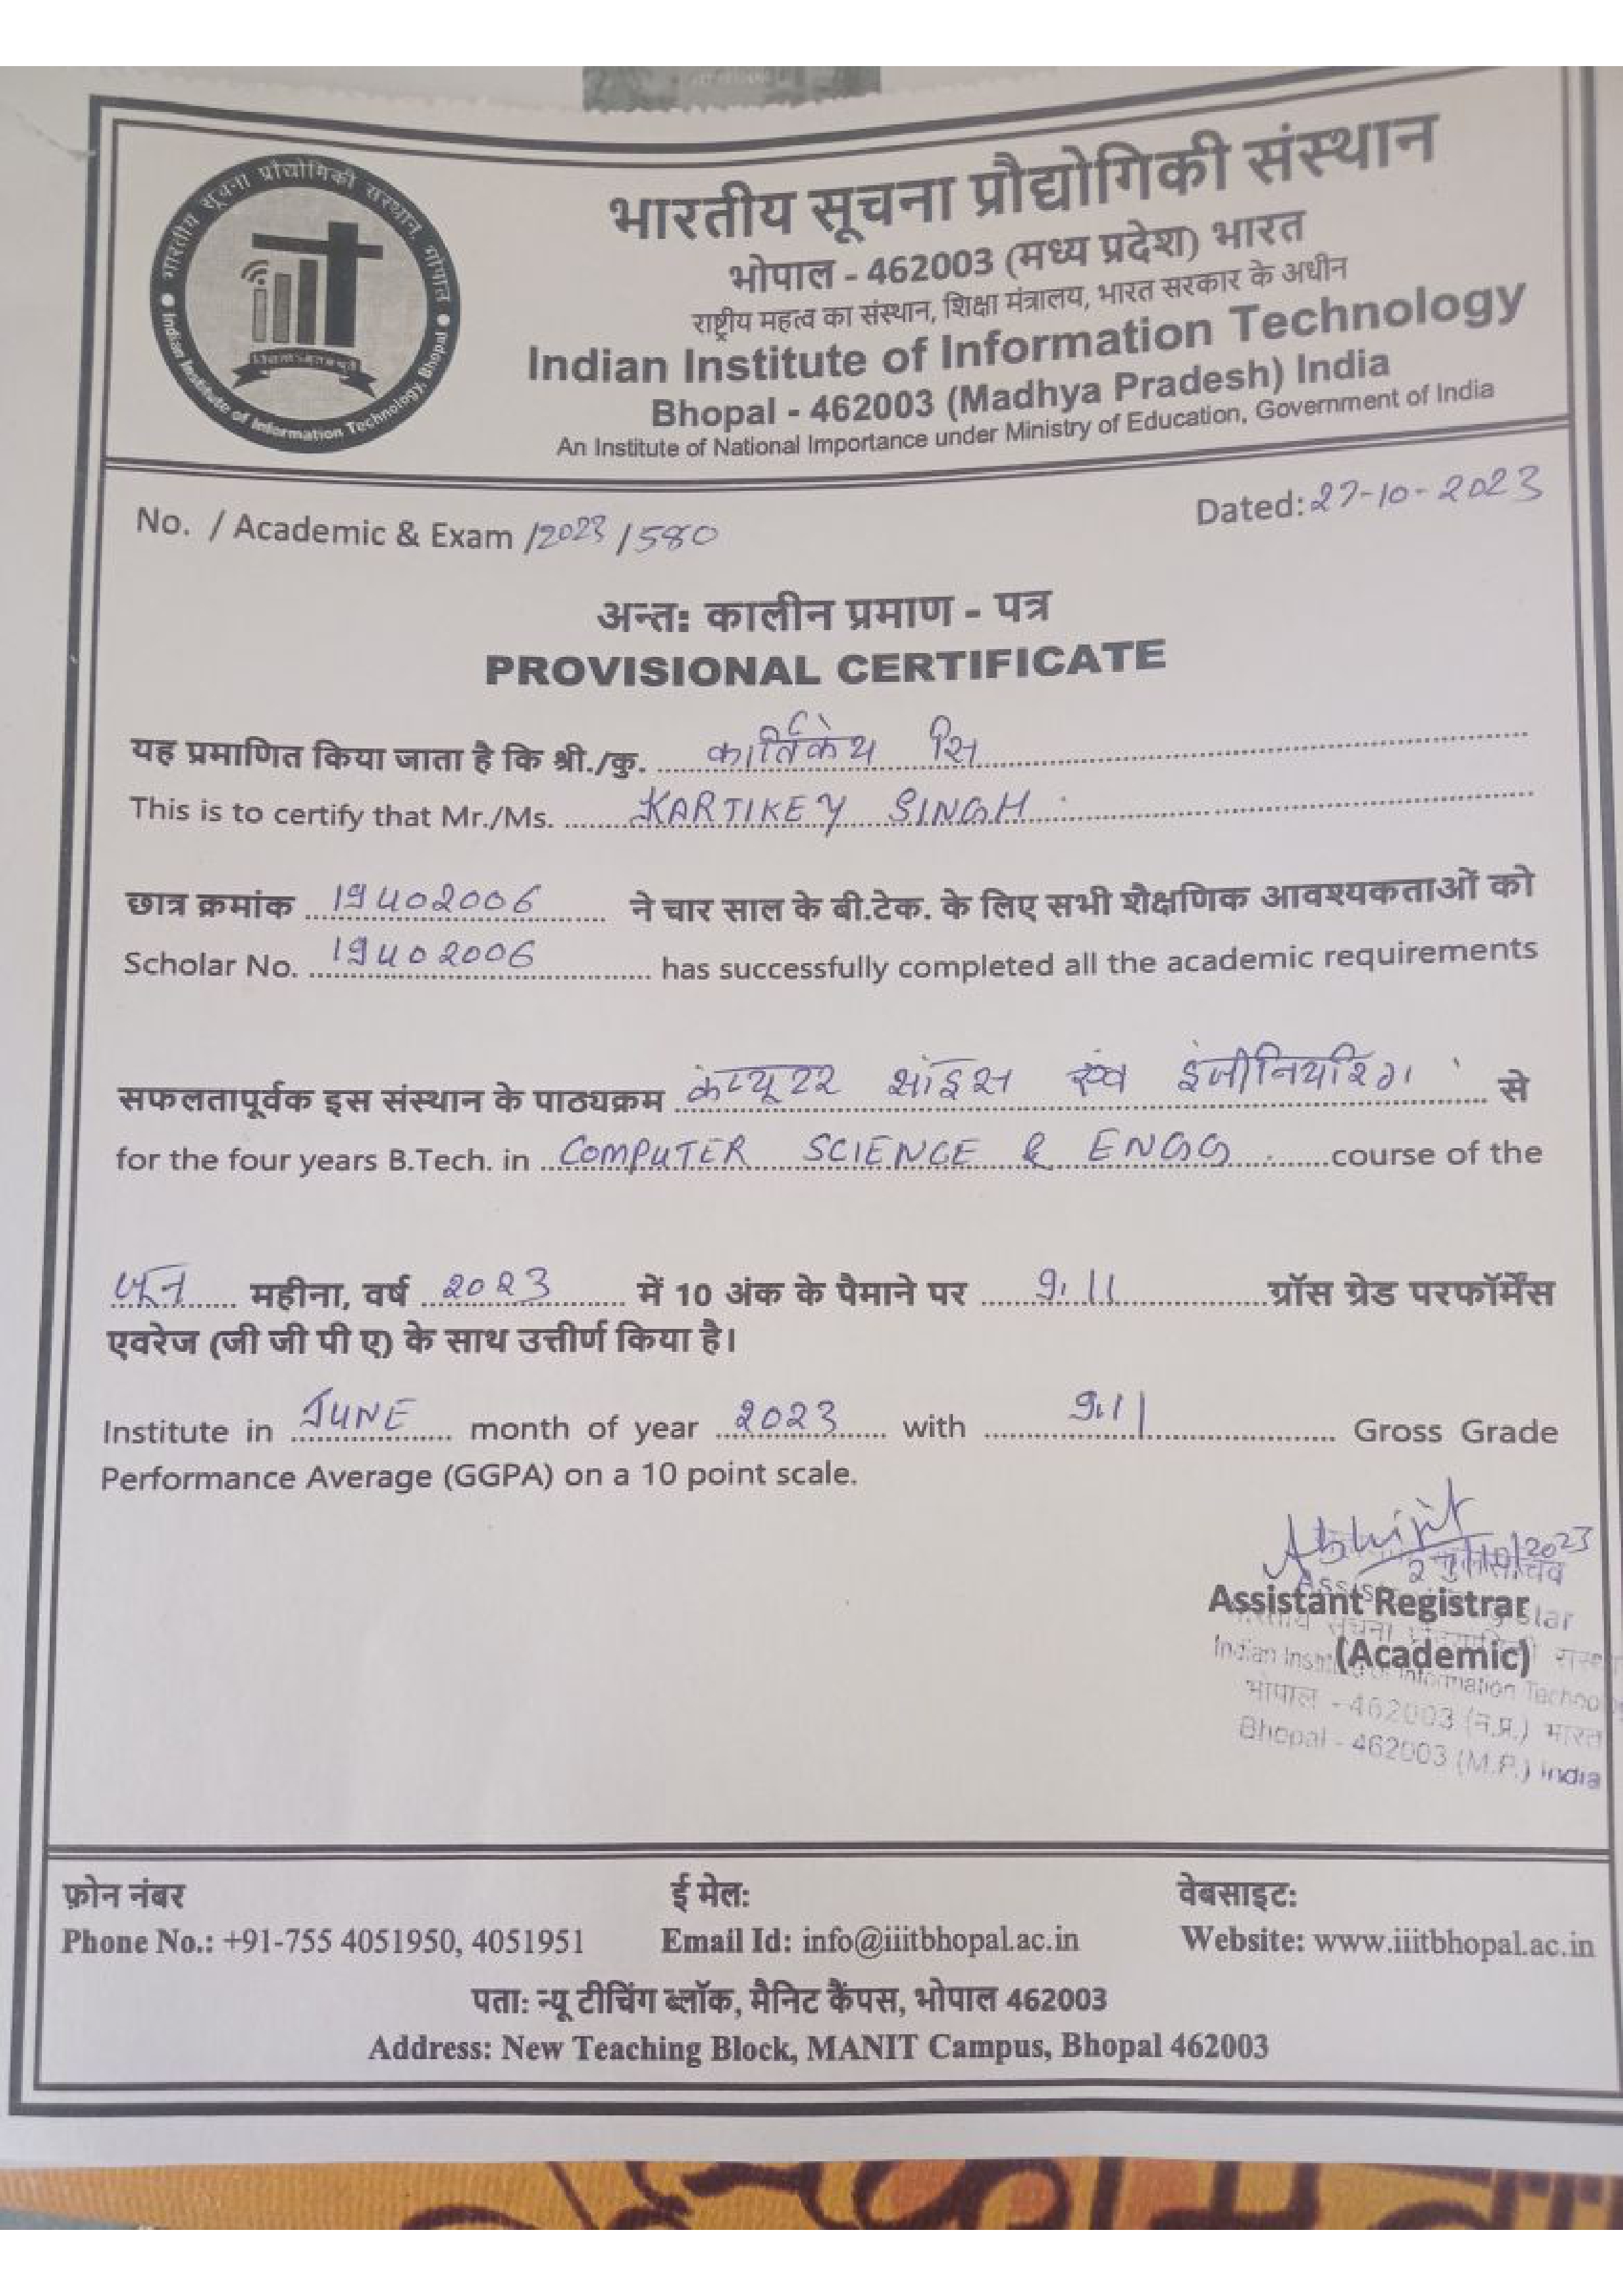 भारतीय सूचना प्रौद्योगिकी संस्थान, भोपाल
Indian Institute of Information Technology, Bhopal
भारतीय सूचना प्रौद्योगिकी संस्थान
भोपाल - 462003 (मध्य प्रदेश) भारत
राष्ट्रीय महत्व का संस्थान, शिक्षा मंत्रालय, भारत सरकार के अधीन
Indian Institute of Information Technology
Bhopal - 462003 (Madhya Pradesh) India
An Institute of National Importance under Ministry of Education, Government of India
No. / Academic & Exam /2023/580 Dated: 27-10-2023
अन्त: कालीन प्रमाण - पत्र
PROVISIONAL CERTIFICATE
यह प्रमाणित किया जाता है कि श्री./कु. कार्तिकेय सि
This is to certify that Mr./Ms. KARTIKEY SINGH
छात्र क्रमांक 19U02006 ने चार साल के बी.टेक. के लिए सभी शैक्षणिक आवश्यकताओं को
Scholar No. 19U02006 has successfully completed all the academic requirements
सफलतापूर्वक इस संस्थान के पाठ्यक्रम इंजीनियरिंग से
for the four years B.Tech. in COMPUTER SCIENCE & ENGG course of the
जून महीना, वर्ष 2023 में 10 अंक के पैमाने पर 9.11 ग्रॉस ग्रेड परफॉर्मेंस
एवरेज (जी जी पी ए) के साथ उत्तीर्ण किया है।
Institute in JUNE month of year 2023 with 9.11 Gross Grade
Performance Average (GGPA) on a 10 point scale.
Abhijit
Assistant Registrar
(Academic)
भोपाल - 462003 (म.प्र.) भारत
Bhopal - 462003 (M.P.) India
फ़ोन नंबर ई मेल: वेबसाइट:
Phone No.: +91-755 4051950, 4051951 Email Id: info@iiitbhopal.ac.in Website: www.iiitbhopal.ac.in
पता: न्यू टीचिंग ब्लॉक, मैनिट कैंपस, भोपाल 462003
Address: New Teaching Block, MANIT Campus, Bhopal 462003